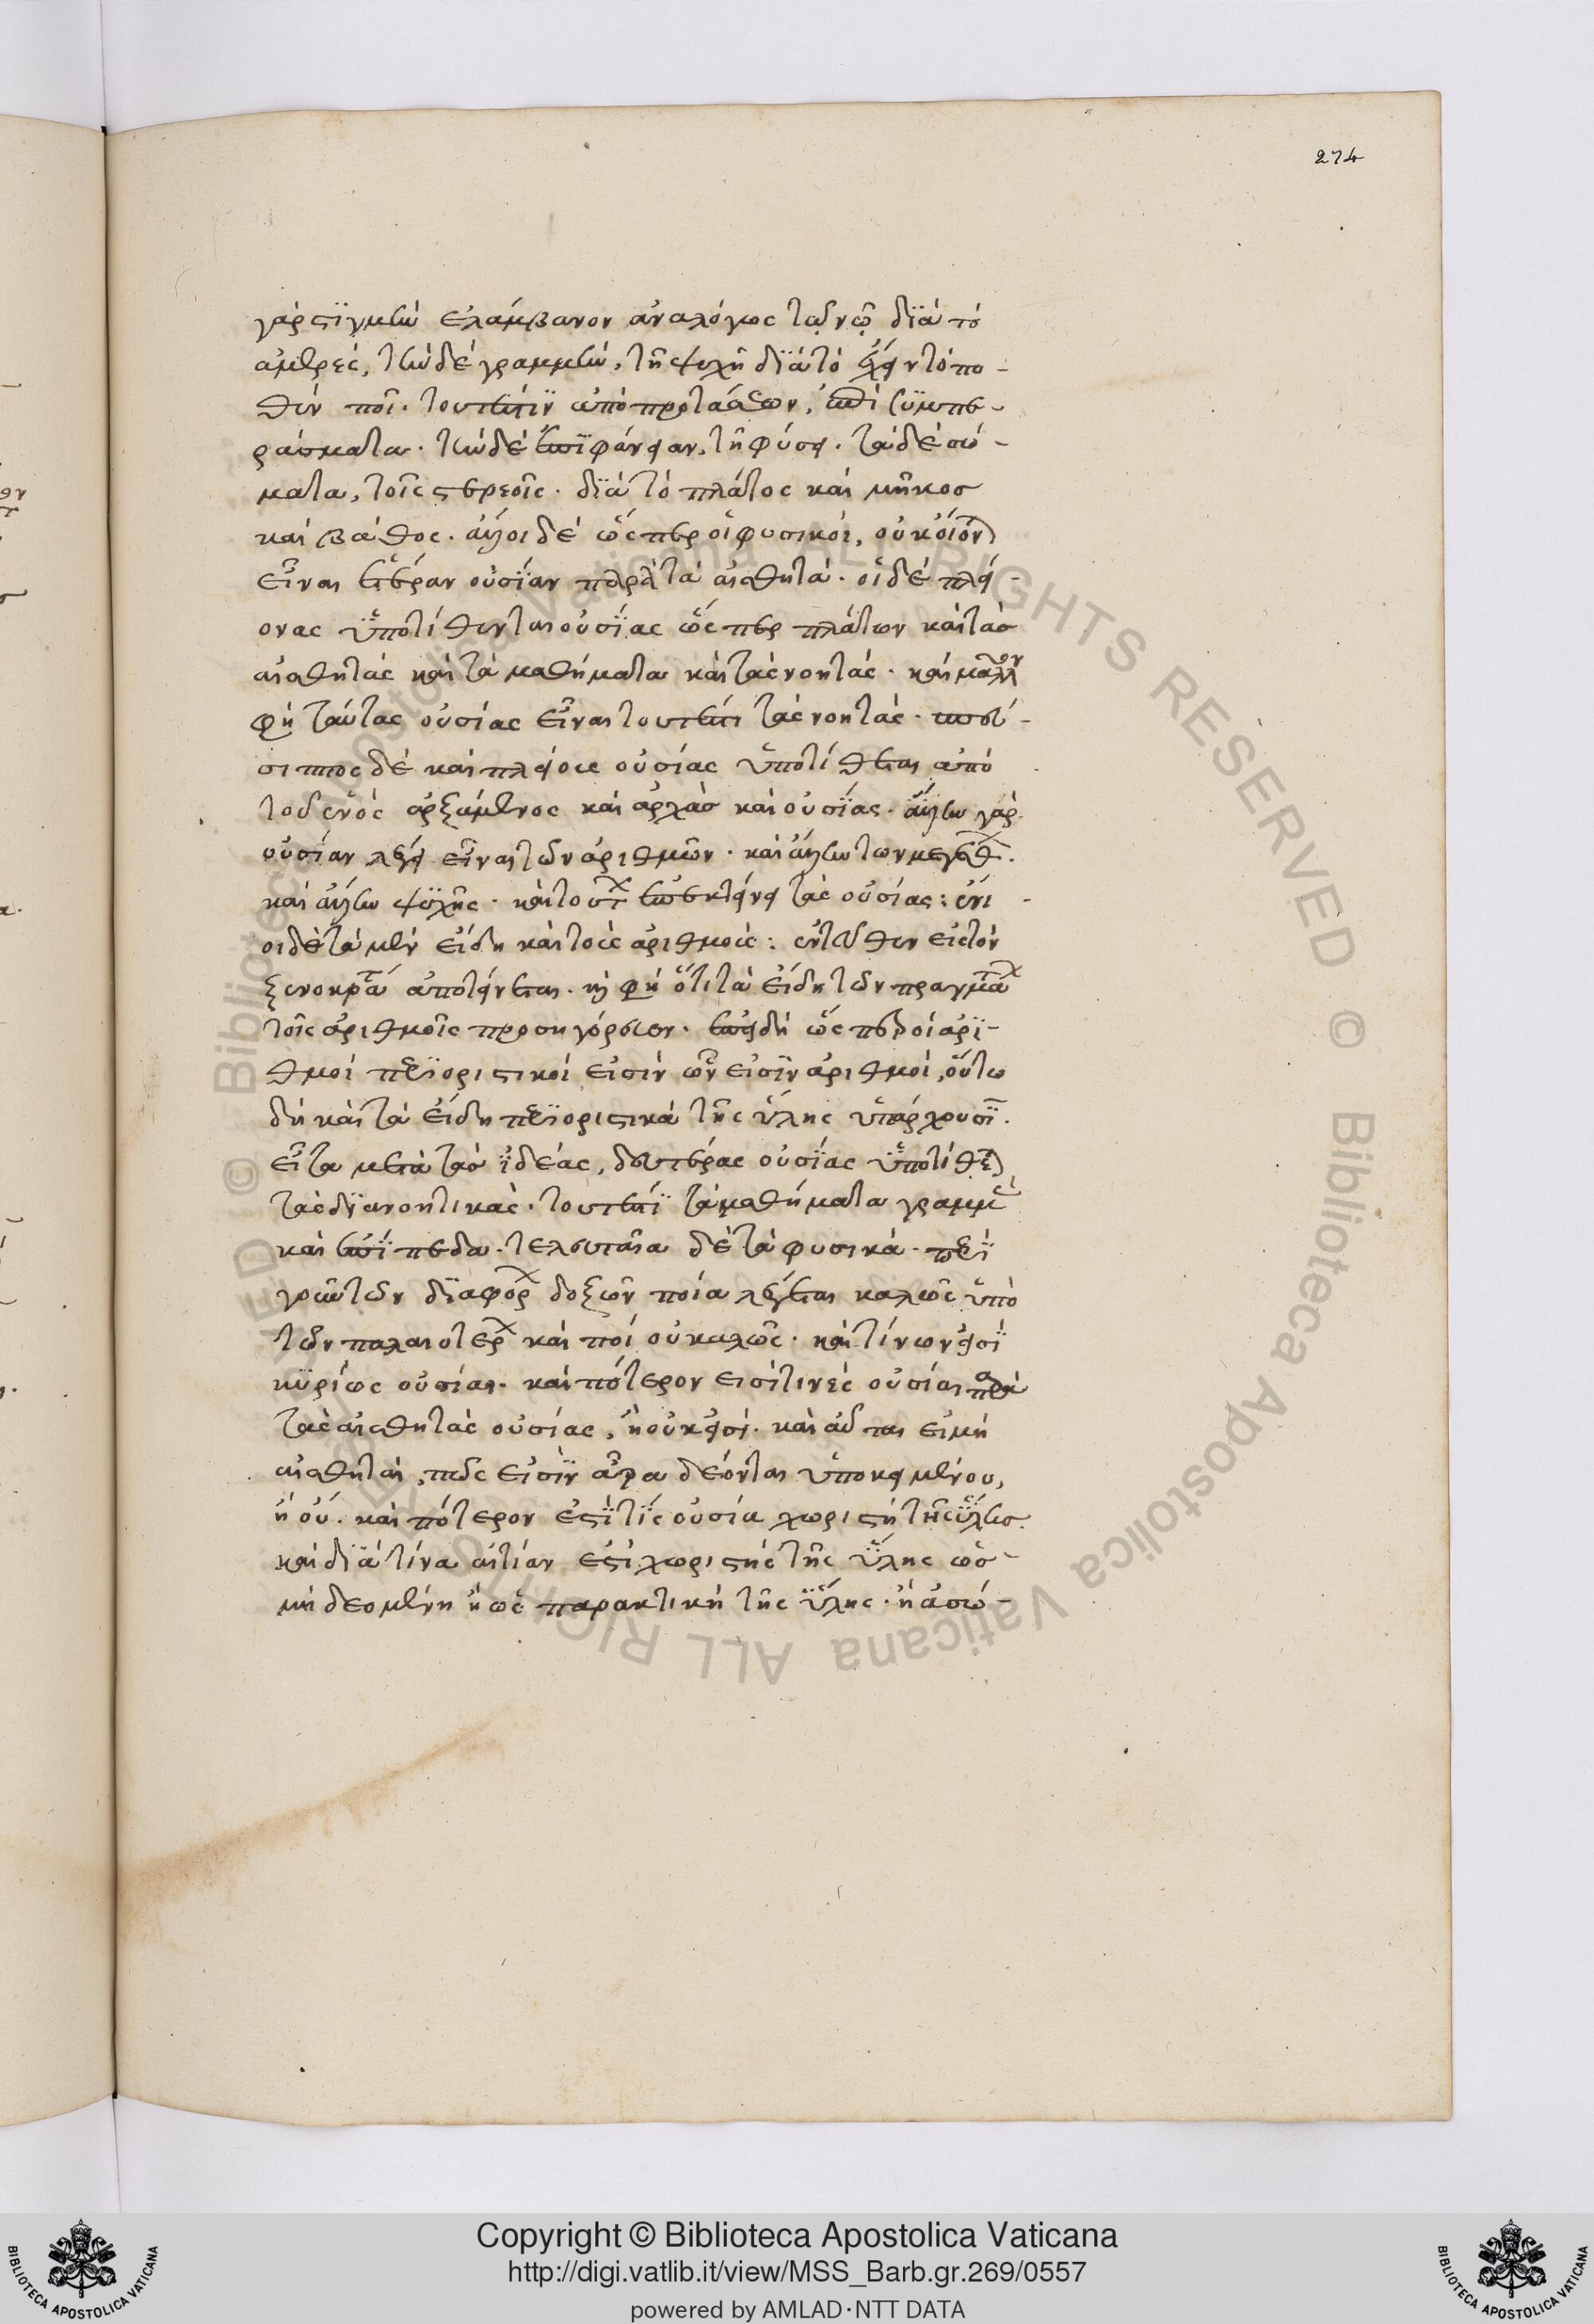 274
γὰρ στιγμὴν ἐλάμβανον ἀναλόγως τῷ νῷ διὰ τὸ
ἀμερές, τὴν δὲ γραμμὴν, τῇ ψυχῇ διὰ τὸ ἔχειν τὸ πο-
θὲν ποῖ. τουτέστιν ἀπὸ προτάσεων, ἐπὶ συμπε-
ράσματα. τὴν δὲ ἐπιφάνειαν, τῇ φύσει. τὰ δὲ σώ-
ματα, τοῖς στερεοῖς. διὰ τὸ πλάτος καὶ μῆκος
καὶ βάθος. ἄλλοι δὲ ὥσπερ οἱ φυσικοὶ, οὐκ οἴονται
εἶναι ἑτέραν οὐσίαν παρὰ τὰ αἰσθητά. οἱ δὲ πλεί-
ονας ὑποτίθενται οὐσίας ὥσπερ πλάτων καὶ τὰς
αἰσθητὰς καὶ τὰ μαθήματα καὶ τὰς νοητάς. καὶ μᾶλλον
φη ταύτας οὐσίας εἶναι τουτέστι τὰς νοητάς.
σιππος δὲ καὶ πλείους οὐσίας ὑποτίθεται ἀπὸ
τοῦ ἑνὸς ἀρξάμενος καὶ ἀρχὰς καὶ οὐσίας. ἄλλην γὰρ
οὐσίαν λέγει εἶναι τῶν ἀριθμῶν. καὶ ἄλλην τῶν μεγεθ.
καὶ ἄλλην ψυχῆς. καὶ τοῦτον ἐπεκτείνει τὰς οὐσίας: ἔνι-
οι δὲ τὰ μὲν εἴδη καὶ τοὺς ἀριθμοὺς: ἐνταῦθεν εἰς τὸν
ξενοκράτ ἀποτείνεται. καὶ φη ὅτι τὰ εἴδη τῶν πραγμάτων
τοῖς ἀριθμοῖς προσηγόρευον. ἐπειδὴ ὥσπερ οἱ ἀρι-
θμοὶ περιοριστικοί εἰσιν ὧν εἰσὶν ἀριθμοί, οὕτω
δὴ καὶ τὰ εἴδη περιοριστικὰ τῆς ὕλης ὑπάρχουσι.
εἶτα μετὰ τὰς ἰδέας, δευτέρας οὐσίας ὑποτίθεται
τὰς διανοητικὰς. τουτέστι τὰ μαθήματα γραμμὰς
καὶ ἐπίπεδα. τελευταῖα δὲ τὰ φυσικά. περὶ
γοῦν τῶν διαφόρων δοξῶν ποία λέγεται καλῶς ὑπὸ
τῶν παλαιοτέρων καὶ ποία οὐ καλῶς. καὶ τίνων εἰσὶ
κυρίως οὐσίαι. καὶ πότερον εἰσί τινες οὐσίαι παρὰ
τὰς αἰσθητὰς οὐσίας, ἢ οὐκ εἰσί. καὶ αὗται εἰ μὴ
αἰσθηταὶ, πῶς εἰσὶν ἄρα δέονται ὑποκειμένου,
ἢ οὔ. καὶ πότερον ἐστί τις οὐσία χωριστὴ τῆς ὕλης.
καὶ διὰ τίνα αἰτίαν ἐστὶ χωριστὴ τῆς ὕλης ὡς
μὴ δεομένη ἢ ὡς παρακτικὴ τῆς ὕλης. ἢ ἀσώ-
© Biblioteca Apostolica Vaticana ALL RIGHTS RESERVED © Biblioteca Apostolica Vaticana ALL RIGHTS RESERVED
Copyright © Biblioteca Apostolica Vaticana
http://digi.vatlib.it/view/MSS_Barb.gr.269/0557
powered by AMLAD·NTT DATA
BIBLIOTECA APOSTOLICA VATICANA
BIBLIOTECA APOSTOLICA VATICANA